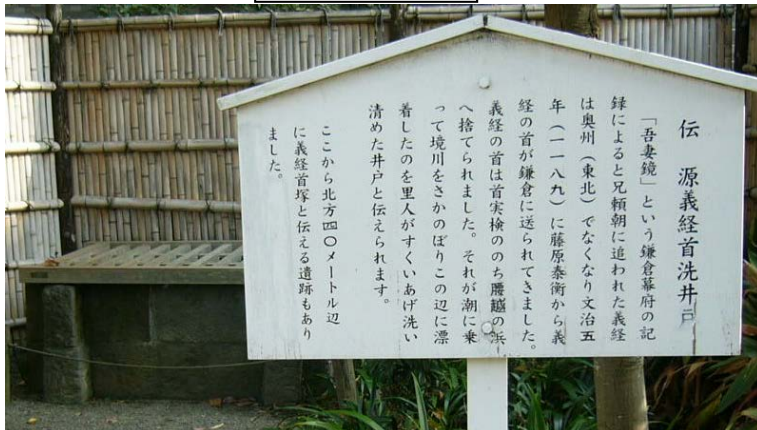 伝　源義経首洗井戸
「吾妻鏡」という鎌倉幕府の記
録によると兄頼朝に追われた義経
は奥州（東北）でなくなり文治五
年（一一八九）に藤原泰衡から義
経の首が鎌倉に送られてきました。
義経の首は首実検ののち腰越の浜
へ捨てられました。それが潮に乗
って境川をさかのぼりこの辺に漂
着したのを里人がすくいあげ洗い
清めた井戸と伝えられます。
ここから北方四〇メートル辺
に義経首塚と伝える遺跡もあり
ました。